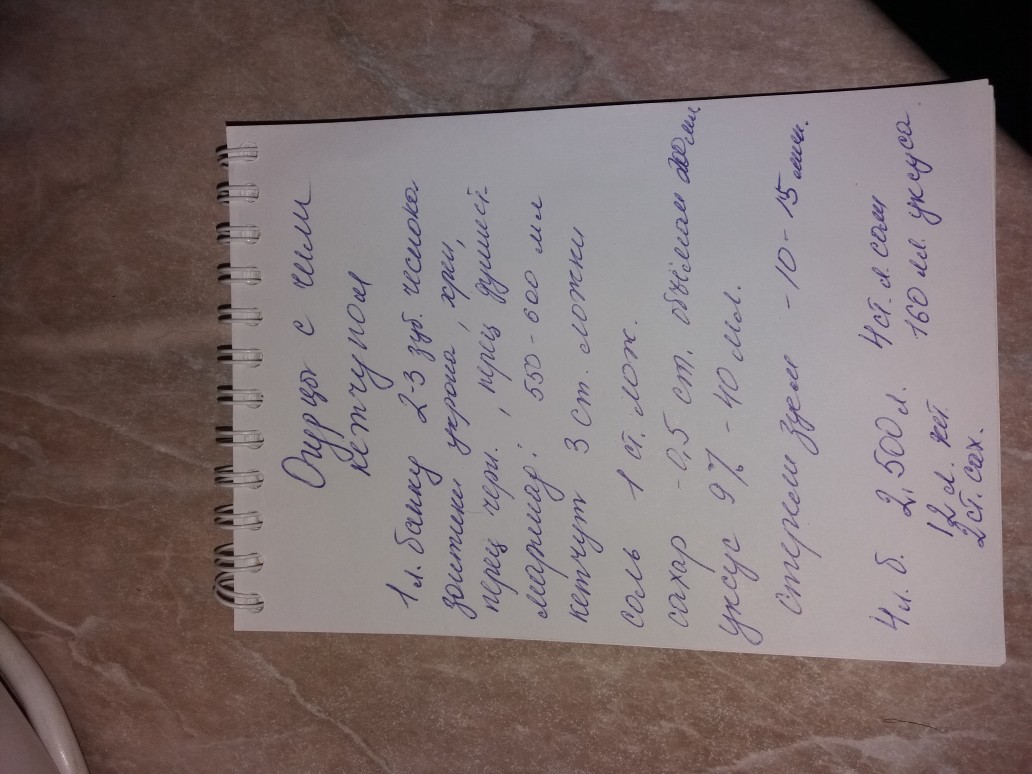 Огурцы с чили
кетчупом
1 л. банку 2-3 зуб. чеснока
зонтики укропа, хрен,
перец черн., перец душист.
маринад: 550-600 мл
кетчуп 3 ст. ложки
соль 1 ст. лож.
сахар -0,5 ст. объёмом 200 мл
уксус 9% -40 мл.
стерилизуем -10-15 мин.
4 л. б. 2,500 л. 4 ст. л. соли
12 л. кет. 160 мл. уксуса
2 ст. сах.